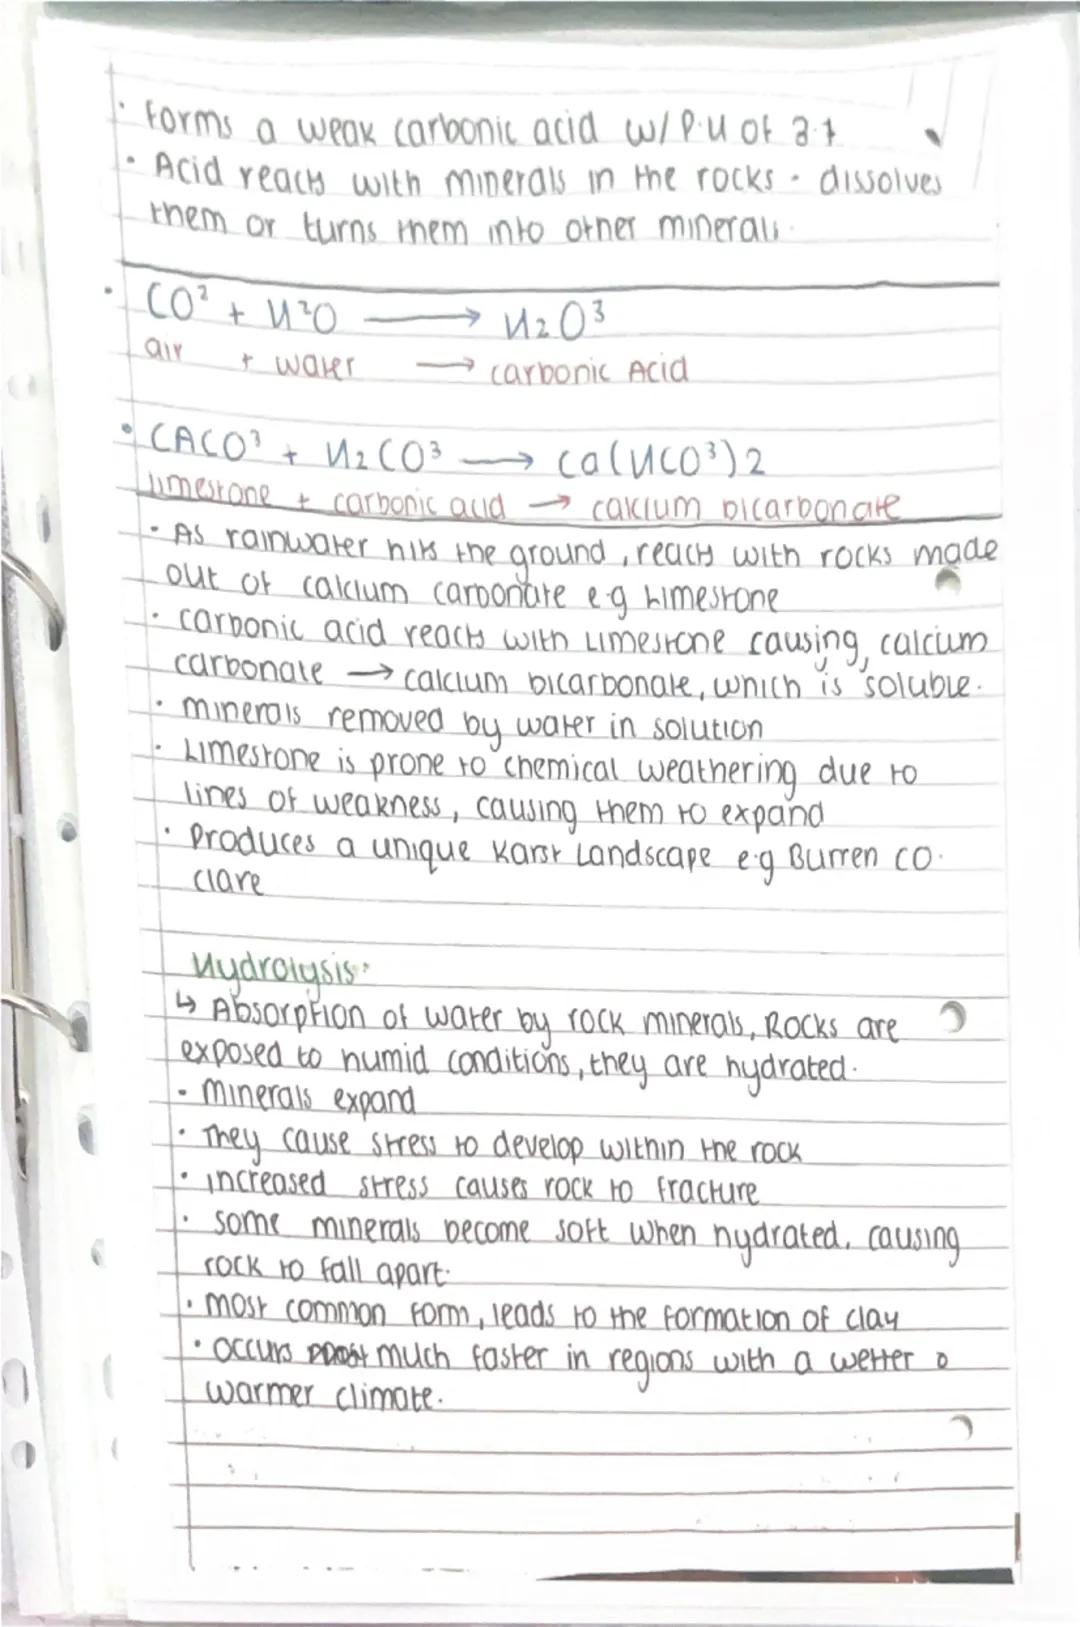 · Forms a weak carbonic acid w/ P.H of 3.7
· Acid reacts with minerals in the rocks · dissolves
them or turns them into other minerals.
· CO² + H²O ⟶ H₂O³
air + water ⟶ carbonic Acid
· CACO³ + H₂CO³ ⟶ Ca(HCO³)2
Limestone + carbonic acid → calcium bicarbonate
· As rainwater hits the ground, reacts with rocks made
out of calcium carbonate e.g Limestone
· carbonic acid reacts with Limestone causing, calcium
carbonate → calcium bicarbonate, which is soluble.
· minerals removed by water in solution
· Limestone is prone to chemical weathering due to
lines of weakness, causing them to expand
· Produces a unique Karst Landscape e.g Burren CO.
Clare
Hydrolysis:
↳ Absorption of water by rock minerals, Rocks are
exposed to humid conditions, they are hydrated.
· Minerals expand
· They cause stress to develop within the rock
· increased stress causes rock to fracture
· some minerals become soft when hydrated, causing
rock to fall apart.
· most common form, leads to the formation of clay
· occurs much faster in regions with a wetter
warmer climate.